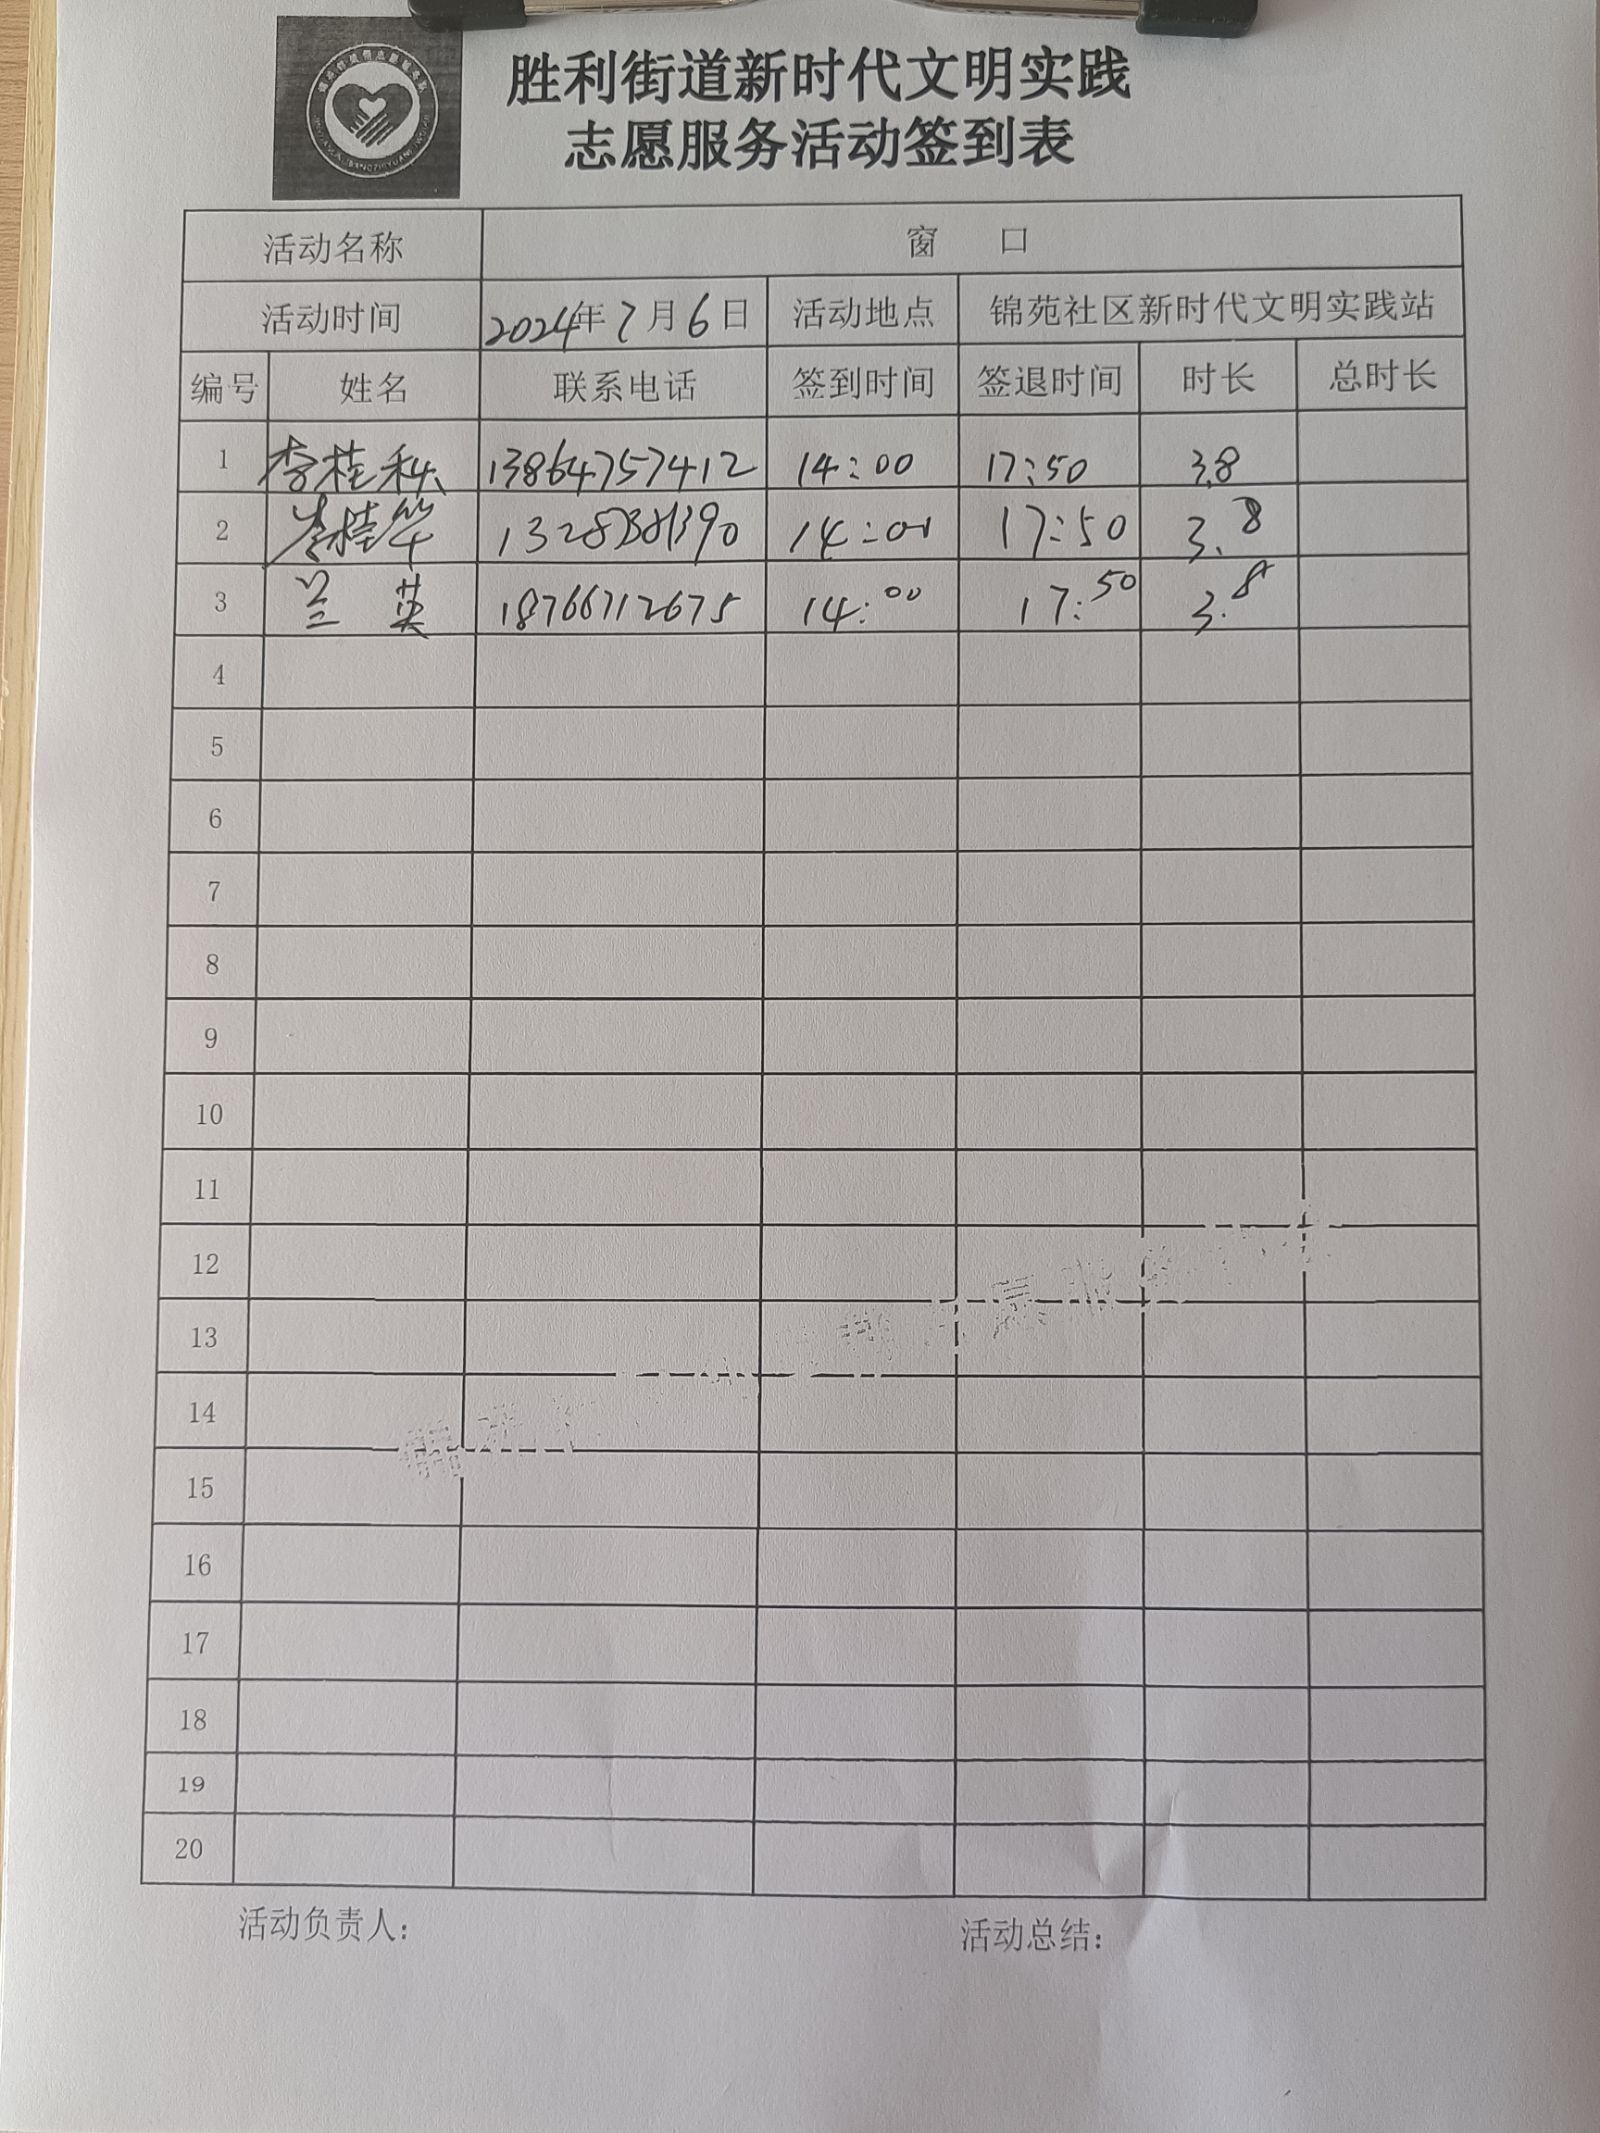 胜利街道新时代文明实践
志愿服务活动签到表
活动名称 窗 口
活动时间 2024年7月6日 活动地点 锦苑社区新时代文明实践站
编号 姓名 联系电话 签到时间 签退时间 时长 总时长
1 李桂秋 13864757412 14:00 17:50 3.8
2 李桂华 14:00 17:50 3.8
3 兰英 18766712675 14:00 17:50 3.8
4
5
6
7
8
9
10
11
12
13
14
15
16
17
18
19
20
活动负责人: 活动总结: